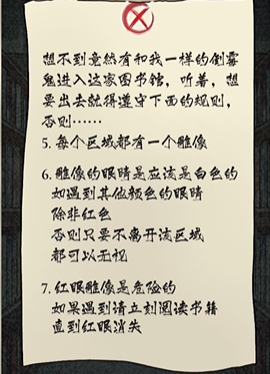 想不到竟然有和我一样的倒霉
鬼进入这家图书馆，听着，想
要出去就得遵守下面的规则，
否则……
5. 每个区域都有一个雕像
6. 雕像的眼睛是应该是白色的
如遇到其他颜色的眼睛
除非红色
否则只要不离开该区域
都可以无视
7. 红眼雕像是危险的
如果遇到请立刻阅读书籍
直到红眼消失